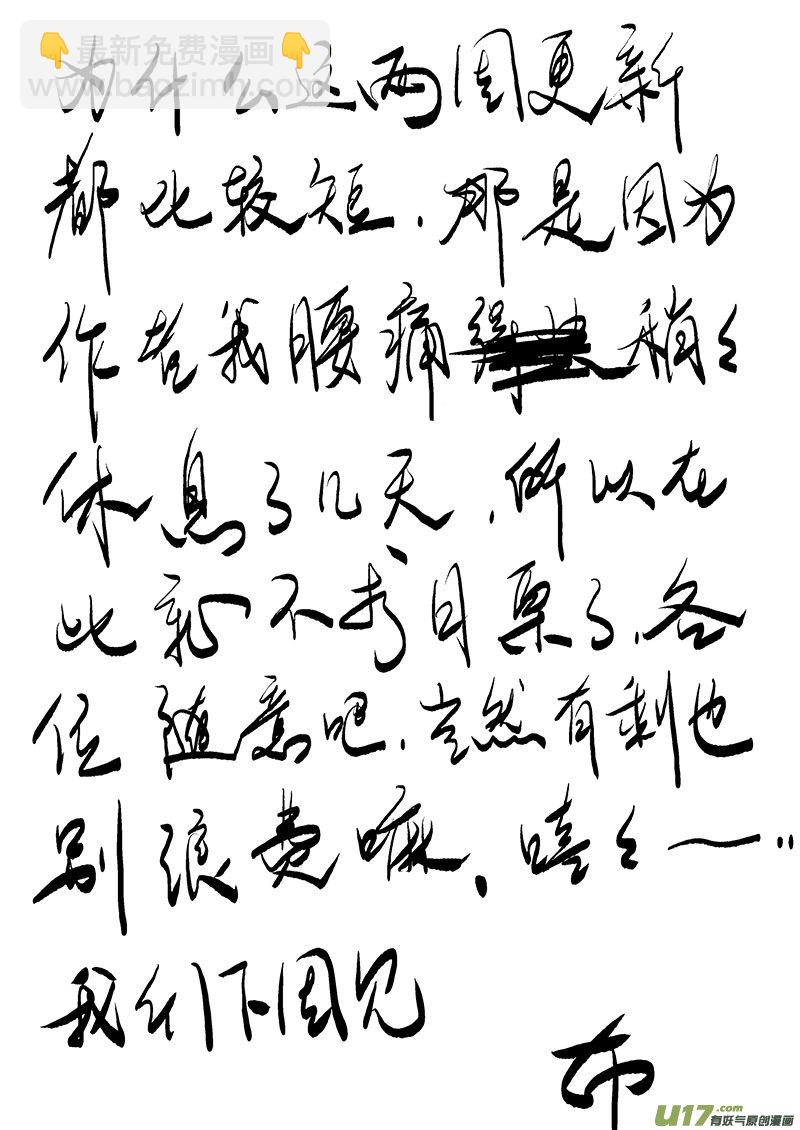 👇最新免费漫画👇
www.baozimh.com
为什么这两周更新
都比较短.那是因为
作者我腰痛 稍々
休息了几天,所以在
此就不求月票了.各
位随意吧.当然有剩也
别浪费嘛、嘻々~..
我们下周见
布
U17.com
有妖气原创漫画